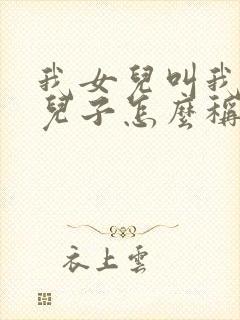 我女兒叫我
兒子怎麼稱
衣上雲